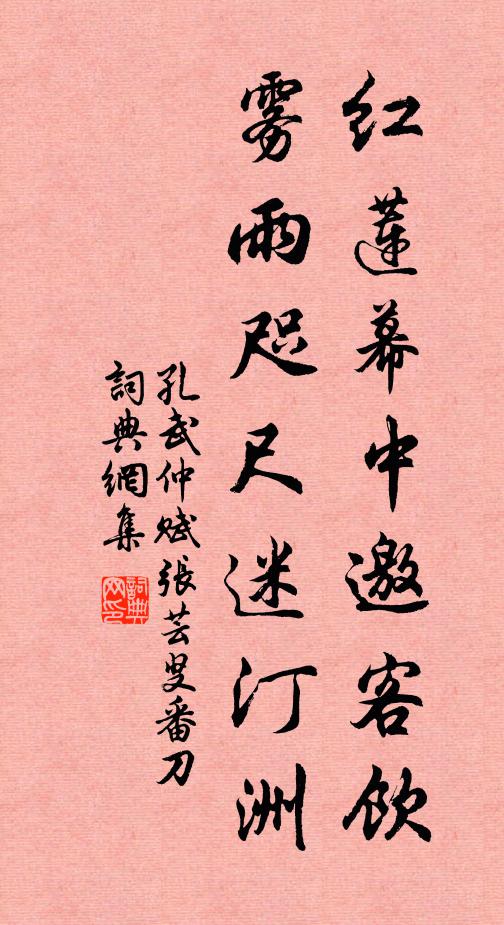 红蓮幕中邀客飲
雾雨咫尺迷汀洲
孔武仲赋張芸叟番刀
詞典網集
詞典網印